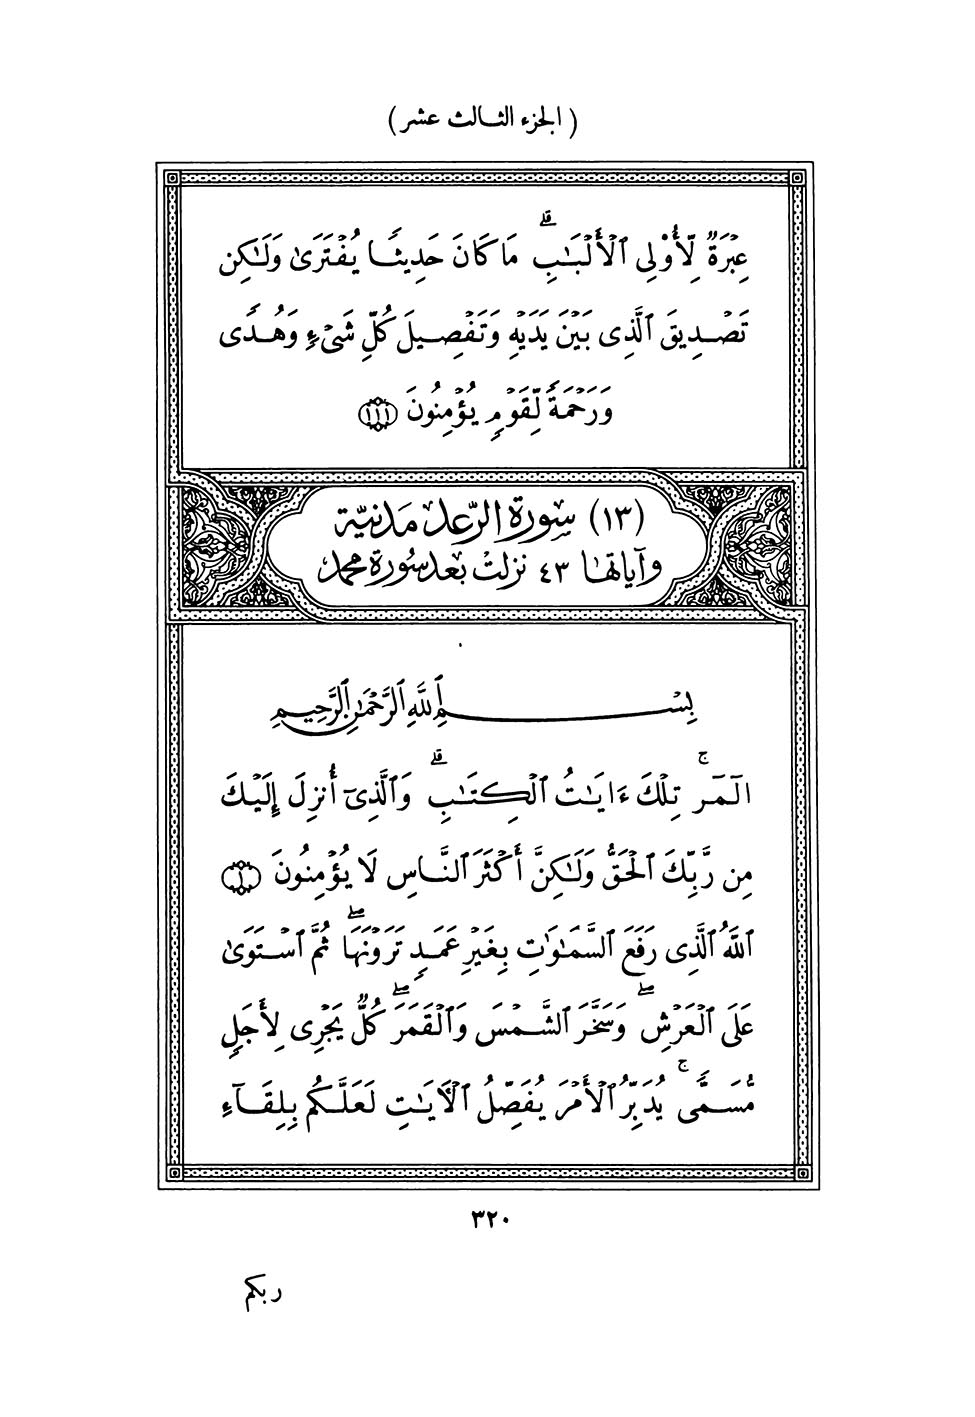 ( الجزء الثالث عشر )
عِبْرَةٌ لِّأُوْلِى ٱلْأَلْبَٰبِ ۗ مَا كَانَ حَدِيثًا يُفْتَرَىٰ وَلَٰكِن
تَصْدِيقَ ٱلَّذِى بَيْنَ يَدَيْهِ وَتَفْصِيلَ كُلِّ شَىْءٍ وَهُدًى
وَرَحْمَةً لِّقَوْمٍ يُؤْمِنُونَ ﴿١١١﴾
(١٣) سورة الرّعد مَدنيّة
وآياتها ٤٣ نزلت بَعد سُورة محمد
بِسْمِ ٱللَّهِ ٱلرَّحْمَٰنِ ٱلرَّحِيمِ
الٓمٓر ۚ تِلْكَ ءَايَٰتُ ٱلْكِتَٰبِ ۗ وَٱلَّذِىٓ أُنزِلَ إِلَيْكَ
مِن رَّبِّكَ ٱلْحَقُّ وَلَٰكِنَّ أَكْثَرَ ٱلنَّاسِ لَا يُؤْمِنُونَ ﴿١﴾
ٱللَّهُ ٱلَّذِى رَفَعَ ٱلسَّمَٰوَٰتِ بِغَيْرِ عَمَدٍ تَرَوْنَهَا ۖ ثُمَّ ٱسْتَوَىٰ
عَلَى ٱلْعَرْشِ ۖ وَسَخَّرَ ٱلشَّمْسَ وَٱلْقَمَرَ ۖ كُلٌّ يَجْرِى لِأَجَلٍ
مُّسَمًّى ۚ يُدَبِّرُ ٱلْأَمْرَ يُفَصِّلُ ٱلْأٓيَٰتِ لَعَلَّكُم بِلِقَآءِ
٣٢٠
ربكم